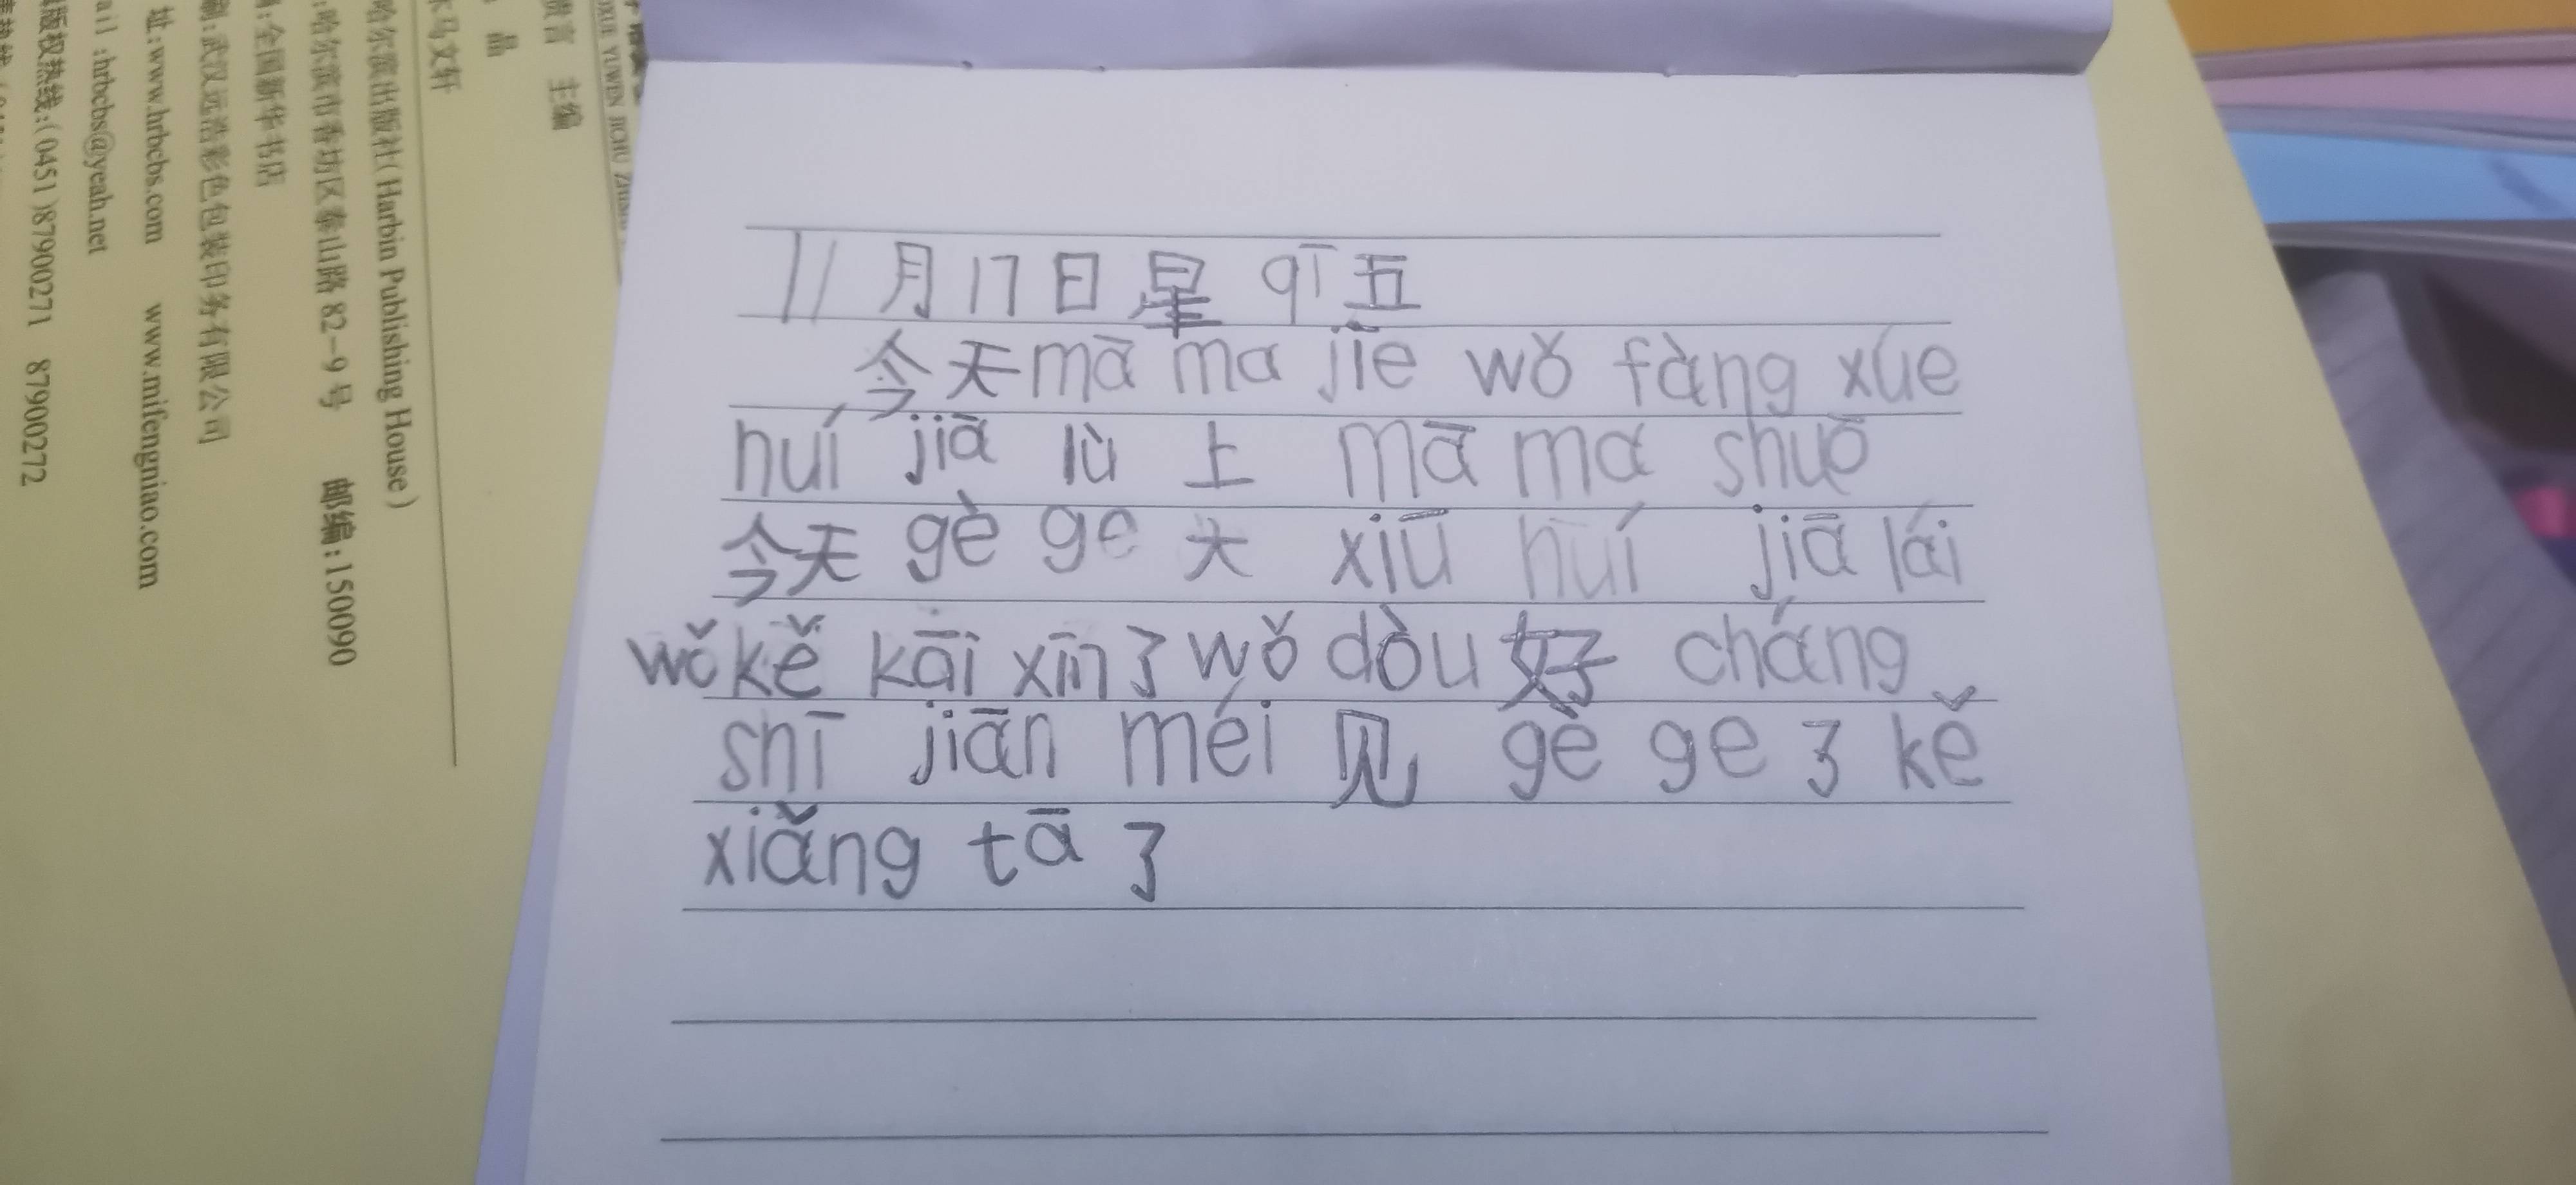 11月17日星qī五
今天mā ma jiē wǒ fàng xúe
huí jiā lù 上 mā ma shuō
今天 gè ge 大 xiū huí jiā lái
wǒ kě kāi xīn 了 wǒ dòu 好 cháng
shī jiān méi 见 gè ge 了 kě
xiǎng tā 了
主编
品
木马文轩
哈尔滨出版社(Harbin Publishing House)
:哈尔滨市香坊区泰山路82-9号 邮编:150090
:全国新华书店
刷:武汉远浩彩色包装印务有限公司
址:www.hrbcbs.com www.mifengniao.com
ail:hrbcbs@yeah.net
版权热线:(0451)87900271 87900272